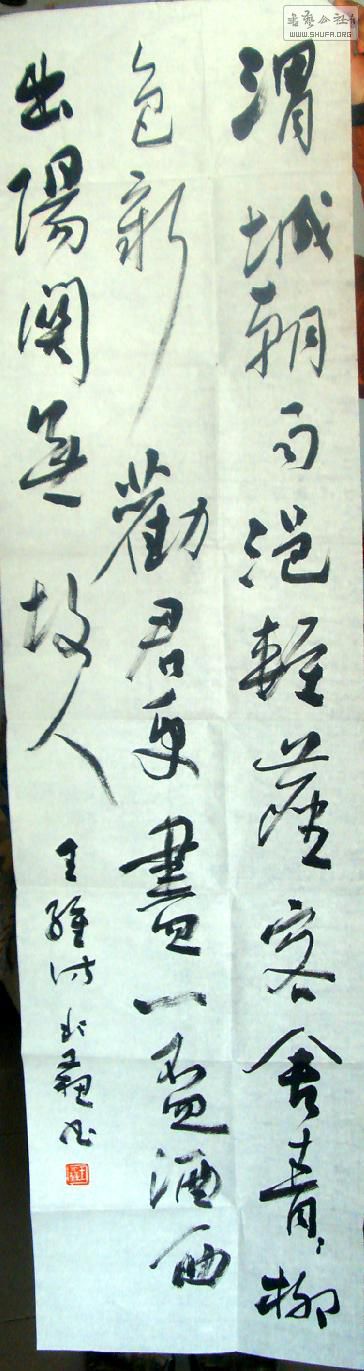 書藝公社
WWW.SHUFA.ORG
渭城朝雨浥輕塵客舍青〻柳
色新勸君更盡一盃酒西
出陽関無故人
王維詩 書